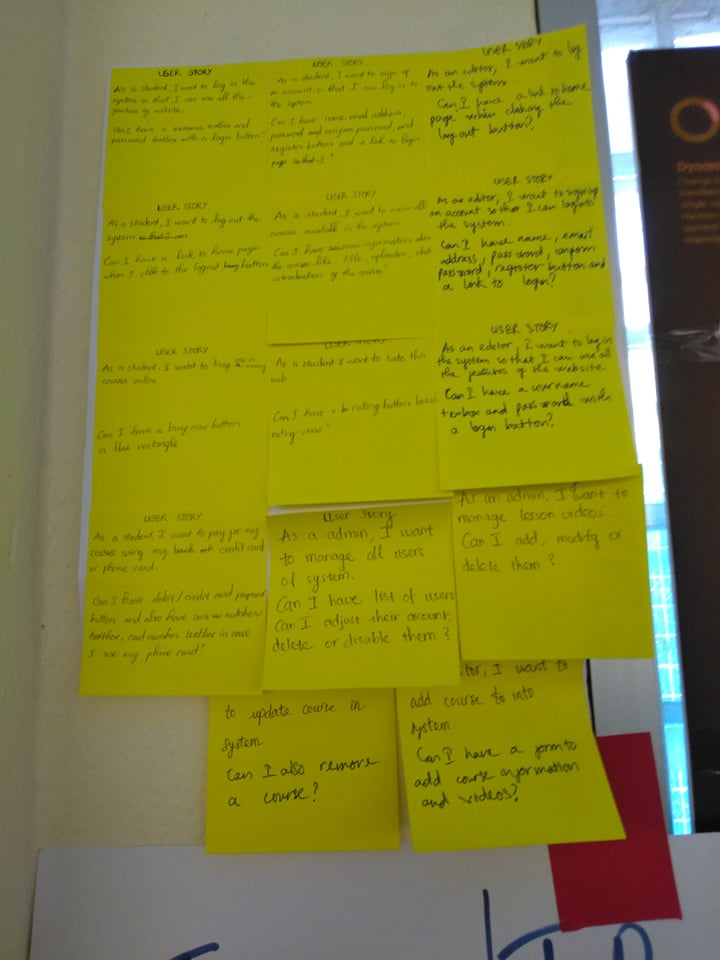 USER STORY
As a student, I want to log in the
system so that I can use all the
feature of website
Can I have a username textbox and
password textbox with a login button?
USER STORY
As a student, I want to sign up
an account so that I can log in to
the system
Can I have name, email address,
password and confirm password, and
register button and a link to login
page so that I?
USER STORY
As an editor, I want to log
out the system.
Can I have a link to home
page when clicking the
log out button?
USER STORY
As a student, I want to log out the
system so that I can
Can I have a link to home page
when I click to the logout button
USER STORY
As a student, I want to view all
courses available in the system
Can I have information
the course like: title, uploader,
introduction of the course?
USER STORY
As an editor, I want to
an account so that I can log into
the system.
Can I have name, email
address, password, confirm
password, register button and
a link to login?
USER STORY
As a student, I want to buy
courses online
Can I have a buy now buttons
in blue rectangle
USER STORY
As a student I want to rate this
web
Can I have a rating buttons
rating class?
USER STORY
As an editor, I want to log in
the system so that I can use all
the features of the website
Can I have a username
textbox and password with
a login button?
USER STORY
As a student, I want to pay for my
courses using my bank credit card
or phone card.
Can I have debit/credit card payment
button and also have number
textbox, card number textbox in case
I use my phone card?
User Story
As a admin, I want
to manage all users
of system.
Can I have list of users
Can I adjust their account,
delete or disable them?
As an admin, I want to
manage lesson videos.
Can I add, modify or
delete them?
to update course in
system.
Can I also remove
a course?
tor, I want to
add course to into
system.
Can I have a form to
add course information
and videos?